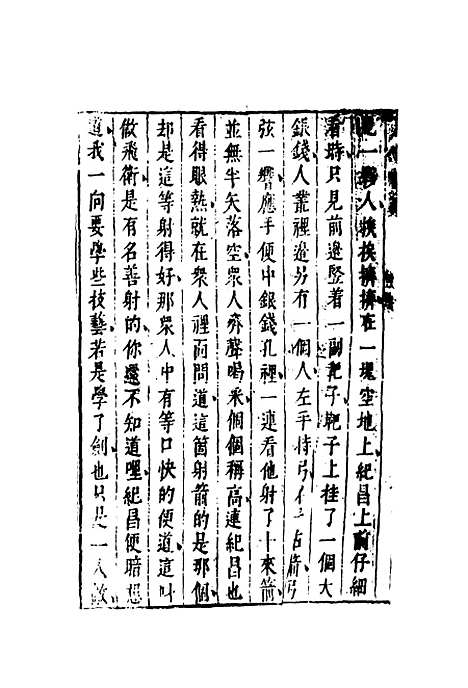 見一夥人挨挨擠擠在一塊空地上紀昌上前仔細
看時只見前邊竪着一副靶子靶子上挂了一個大
銀錢人叢裡另有一個人左手持弓右箭弓
弦一響應手便中銀錢孔裡一連看他射了十來箭
並無半矢落空衆人齊聲喝采個個稱高連紀昌也
看得眼熱就在衆人裡面問道這箇射箭的是那個
却是這等射得好那衆人中有等口快的便道這叫
做飛衛是有名善射的你還不知道哩紀昌便暗想
道我一向要學些技藝若是學了劍也只是一人敵